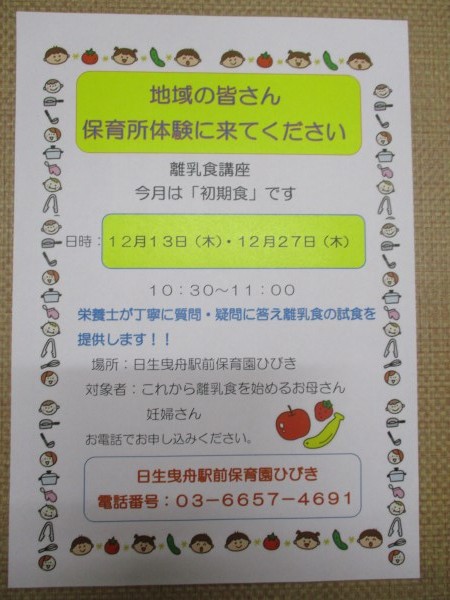 地域の皆さん
保育所体験に来てください
離乳食講座
今月は「初期食」です
日時：１２月１３日（木）・１２月２７日（木）
１０：３０～１１：００
栄養士が丁寧に質問・疑問に答え離乳食の試食を
提供します！！
場所：日生曳舟駅前保育園ひびき
対象者：これから離乳食を始めるお母さん
妊婦さん
お電話でお申し込みください。
日生曳舟駅前保育園ひびき
電話番号：０３－６６５７－４６９１